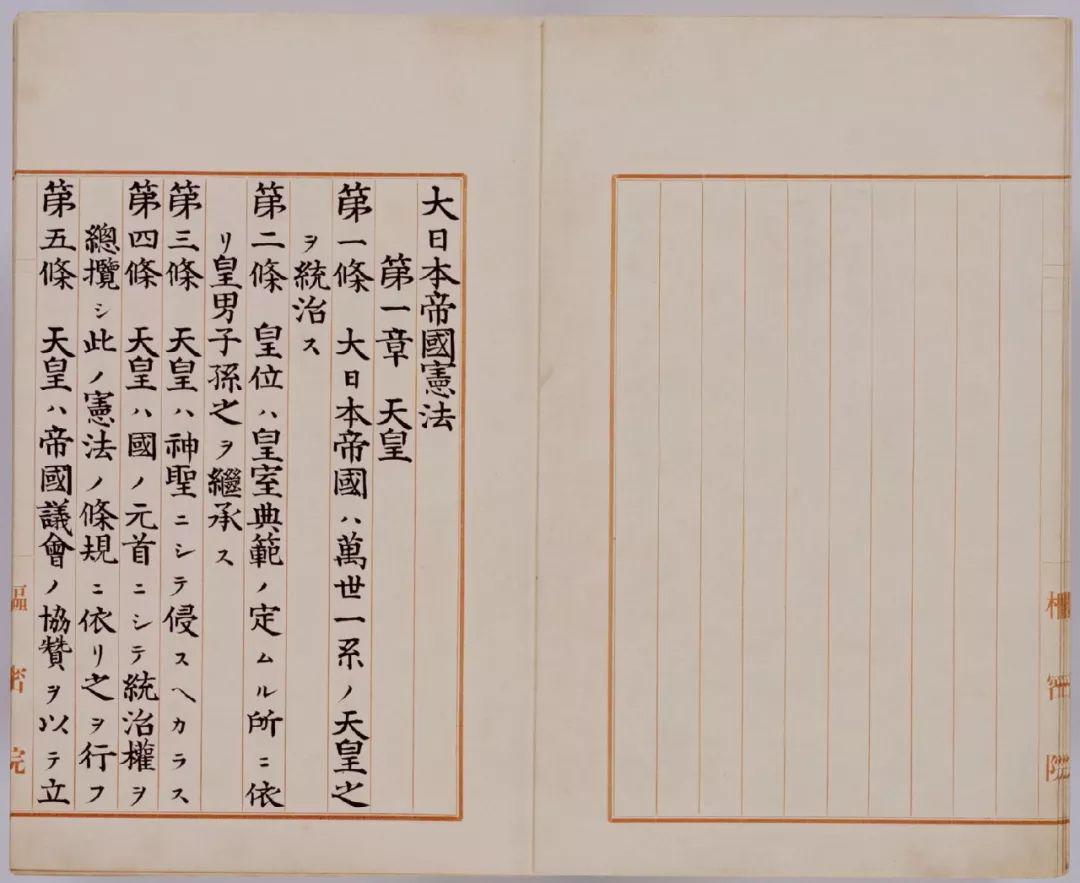 大日本帝國憲法
第一章　天皇
第一條　大日本帝國ハ萬世一系ノ天皇之
ヲ統治ス
第二條　皇位ハ皇室典範ノ定ムル所ニ依
リ皇男子孫之ヲ繼承ス
第三條　天皇ハ神聖ニシテ侵スヘカラス
第四條　天皇ハ國ノ元首ニシテ統治權ヲ
總攬シ此ノ憲法ノ條規ニ依リ之ヲ行フ
第五條　天皇ハ帝國議會ノ協贊ヲ以テ立
樞密院